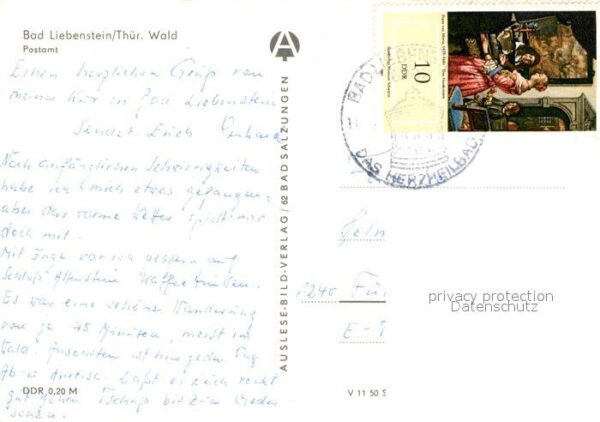 Bad Liebenstein/Thür. Wald
Postamt
Einen herzlichen Gruß von
meiner Kur in Bad Liebenstein
sendet Euch Gerhard
Nach anfänglichen Schwierigkeiten
habe ich mich etwas gefangen,
aber das warme Wetter spielt mir
doch mit.
Mit Inge war ich gestern auf
Schloß Altenstein Kaffee trinken.
Es war eine schöne Wanderung
von je 45 Minuten, meist im
Wald. Ansonsten ist hier jeden Tag
Ab- u Anreise. Laßt es Euch recht
gut gehen Tschüß bis zum Wieder-
sehen.
DDR 0,20 M
AUSLESE-BILD-VERLAG/62 BAD SALZUNGEN
V 11 50
DDR
10
BAD
DAS HERZHEILBAD
1240 Für
E-
privacy protection
Datenschutz